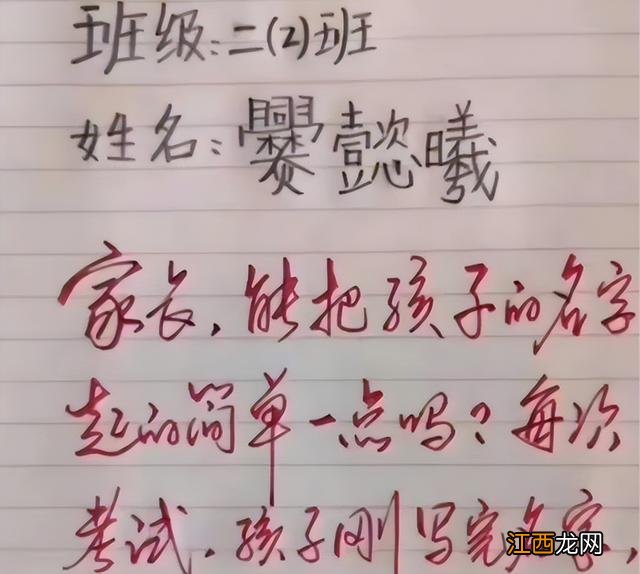 班级:二(2)班
姓名:爨懿曦
家长,能把孩子的名字
起的简单一点吗?每次
考试,孩子刚写完名字,
江西龙网